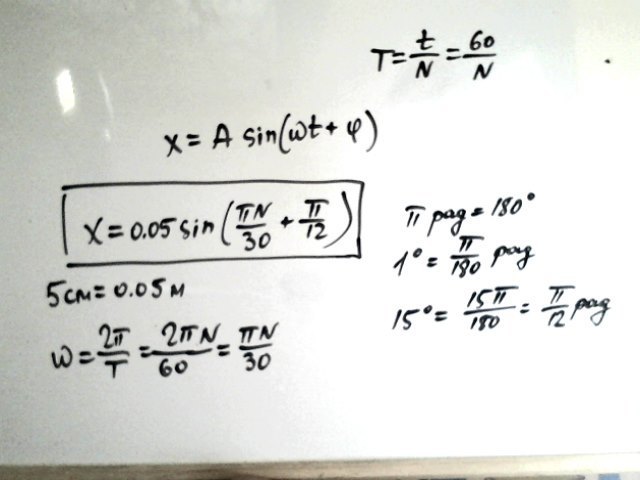 T = t/N = 60/N
x = A sin(ωt + φ)
x = 0.05 sin(πN/30 + π/12)
5см = 0.05 м
ω = 2π/T = 2πN/60 = πN/30
π рад = 180°
1° = π/180 рад
15° = 15π/180 = π/12 рад